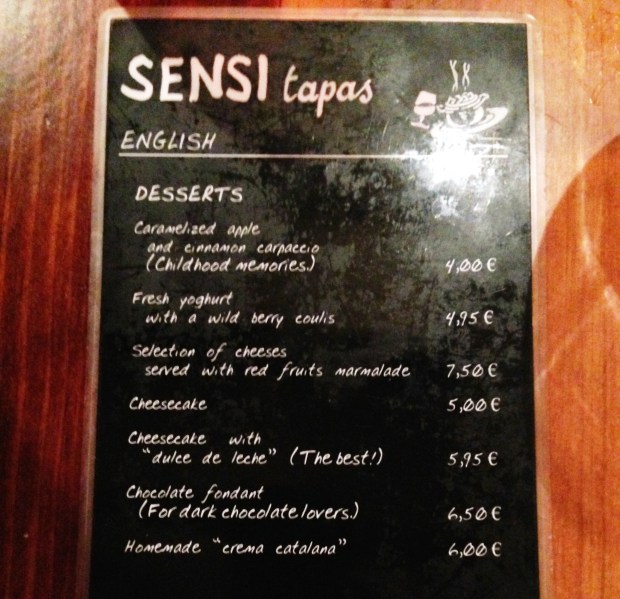 SENSI tapas
ENGLISH
DESSERTS
Caramelized apple
and cinnamon carpaccio
(Childhood memories.) 4,00 €
Fresh yoghurt
with a wild berry coulis 4,95 €
Selection of cheeses
served with red fruits marmalade 7,50 €
Cheesecake 5,00 €
Cheesecake with
"dulce de leche" (The best!) 5,95 €
Chocolate fondant
(For dark chocolate lovers.) 6,50 €
Homemade "crema catalana" 6,00 €